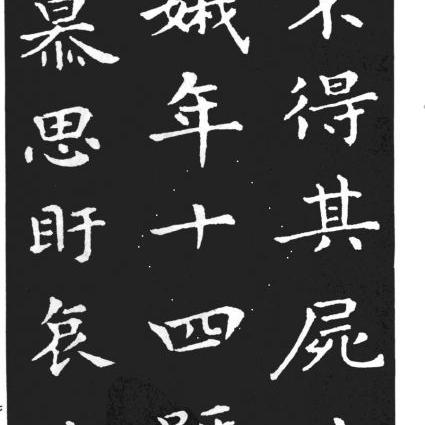 不得其屍
娥年十四
慕思盱哀